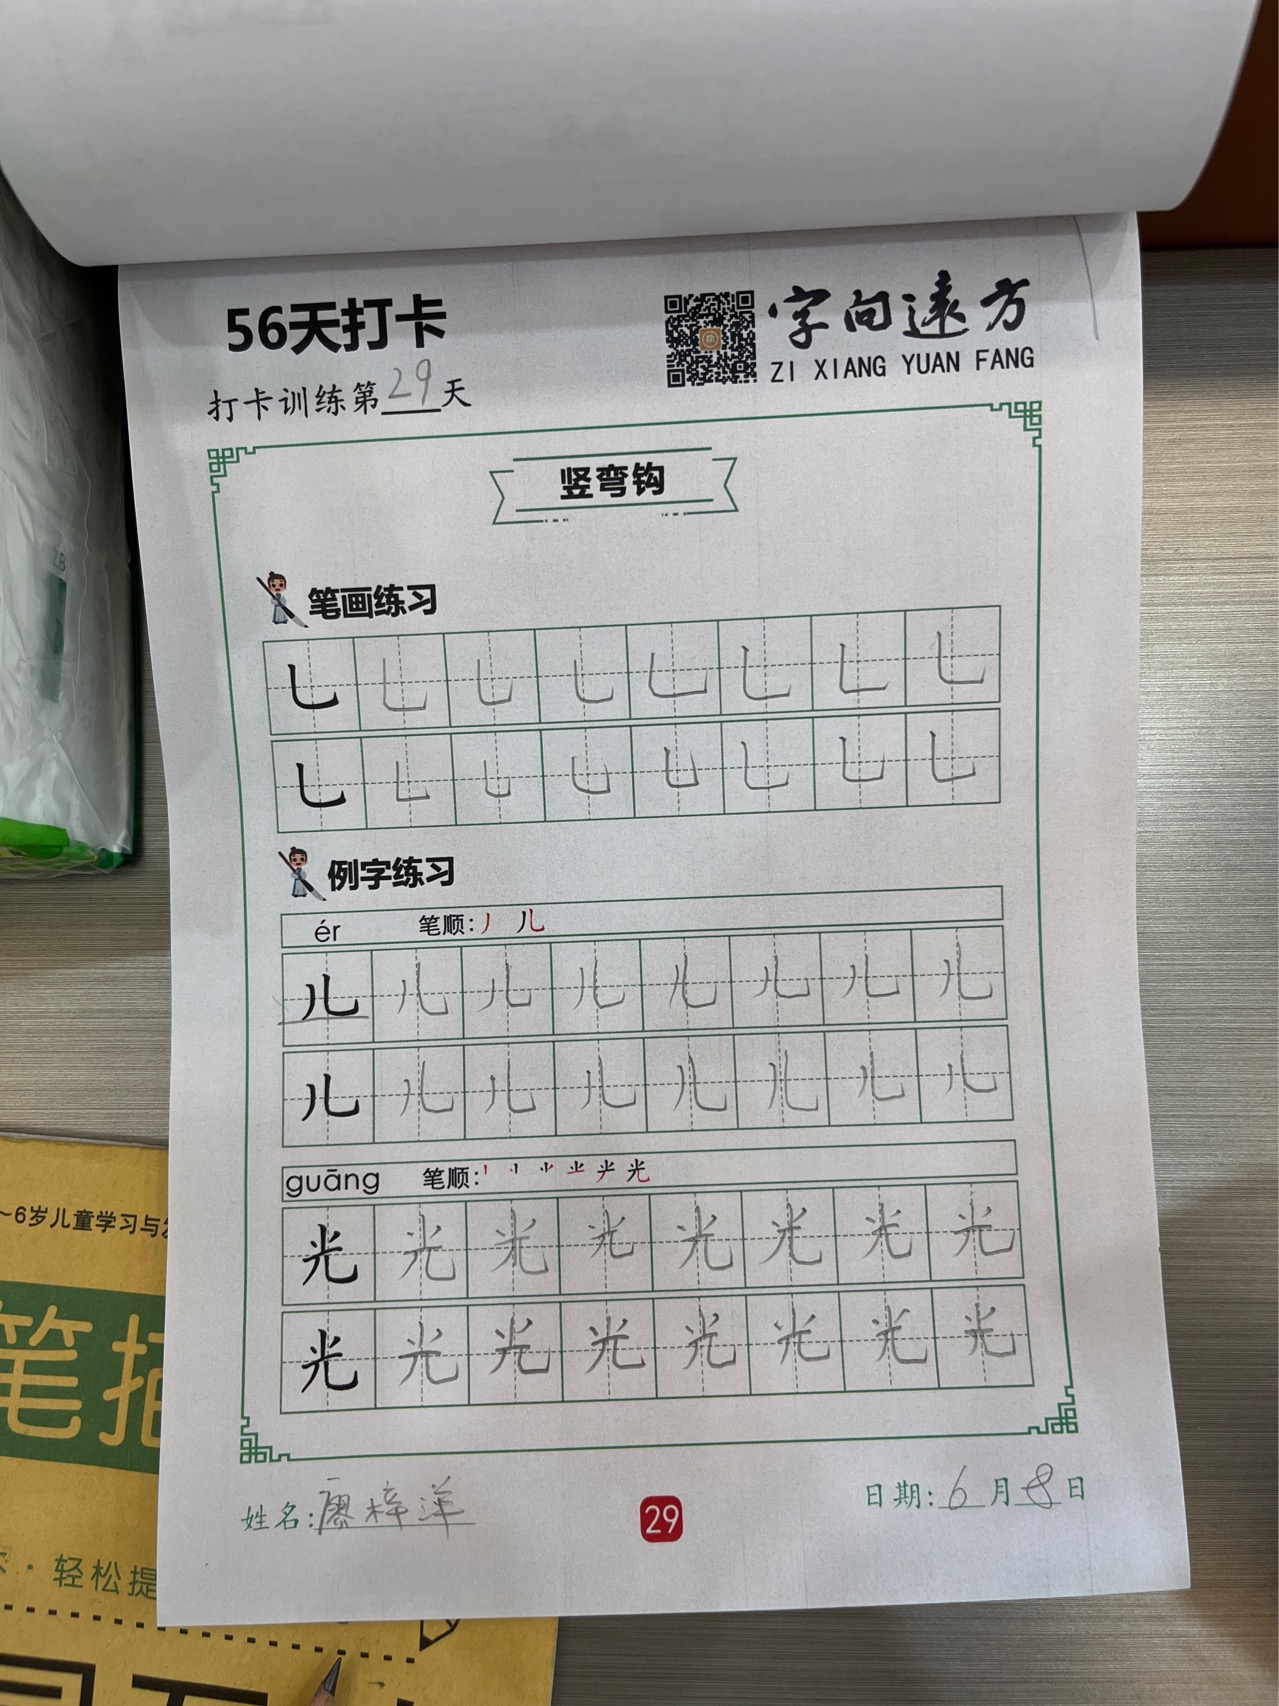 56天打卡
字向遠方
ZI XIANG YUAN FANG
打卡训练第29天
竖弯钩
笔画练习
乚 乚 乚 乚 乚 乚 乚 乚
乚 乚 乚 乚 乚 乚 乚 乚
例字练习
ér 笔顺: 丿 儿
儿 儿 儿 儿 儿 儿 儿 儿
儿 儿 儿 儿 儿 儿 儿 儿
guāng 笔顺:
光 光 光 光 光 光 光 光
光 光 光 光 光 光 光 光
姓名:廖梓洋
29
日期:6月8日
~6岁儿童学习与
笔
·轻松提